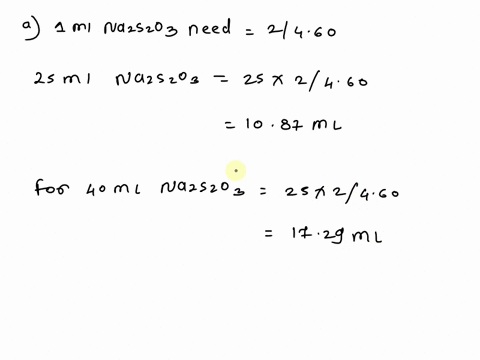 a) 1 ml Na2S2O3 need = 2/4.60
25 ml Na2S2O3 = 25 x 2/4.60
= 10.87 mL
for 40 ml Na2S2O3 = 25 x 2/4.60
= 17.29 mL